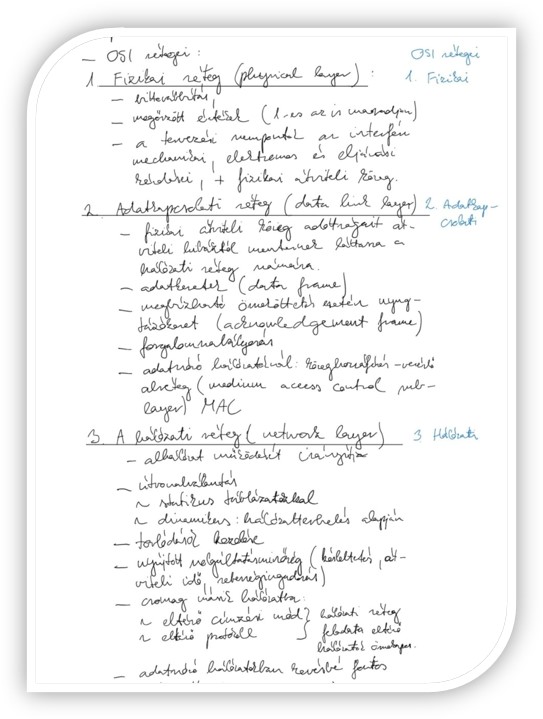 — OSI rétegei :
OSI rétegei
1. Fizikai réteg (physical layer) :
1. Fizikai
— bittovábbítás,
— megőrzött értékek (1-es az is maradjon)
— a tervezési szempontok az interfész
mechanikai, elektromos és eljárási
kérdései, + fizikai átviteli közeg.
2. Adatkapcsolati réteg (data link layer)
2. Adatkap-
csolati
— fizikai átviteli közeg adottságait át-
viteli hibáktól mentesnek láttassa a
hálózati réteg számára.
— adatkeretek (data frame)
— megbízható összeköttetés esetén nyug-
tázókeret (acknowledgement frame)
— forgalomszabályozás
— adatszóró hálózatoknál: közeghozzáférés-vezérlő
alréteg (medium access control sub-
layer) MAC
3. A hálózati réteg (network layer)
3 Hálózati
— alhálózat működését irányítja
— útvonalválasztás
~ statikus táblázatokkal
~ dinamikus: hálózatterhelés alapján
— torlódások kezelése
— nyújtott szolgáltatásminőség (késleltetés, át-
viteli idő, sebességingadozás)
— csomag másik hálózatba:
~ eltérő címzési mód
~ eltérő protokoll
hálózati réteg
feladata eltérő
hálózatok összekapcs.
— adatszóró hálózatokban kevésbé fontos